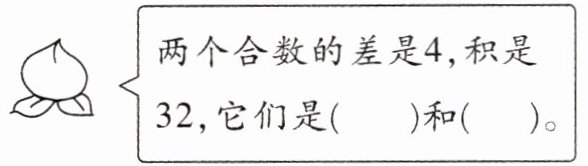 两个合数的差是4,积是
32,它们是(　　)和(　　)。